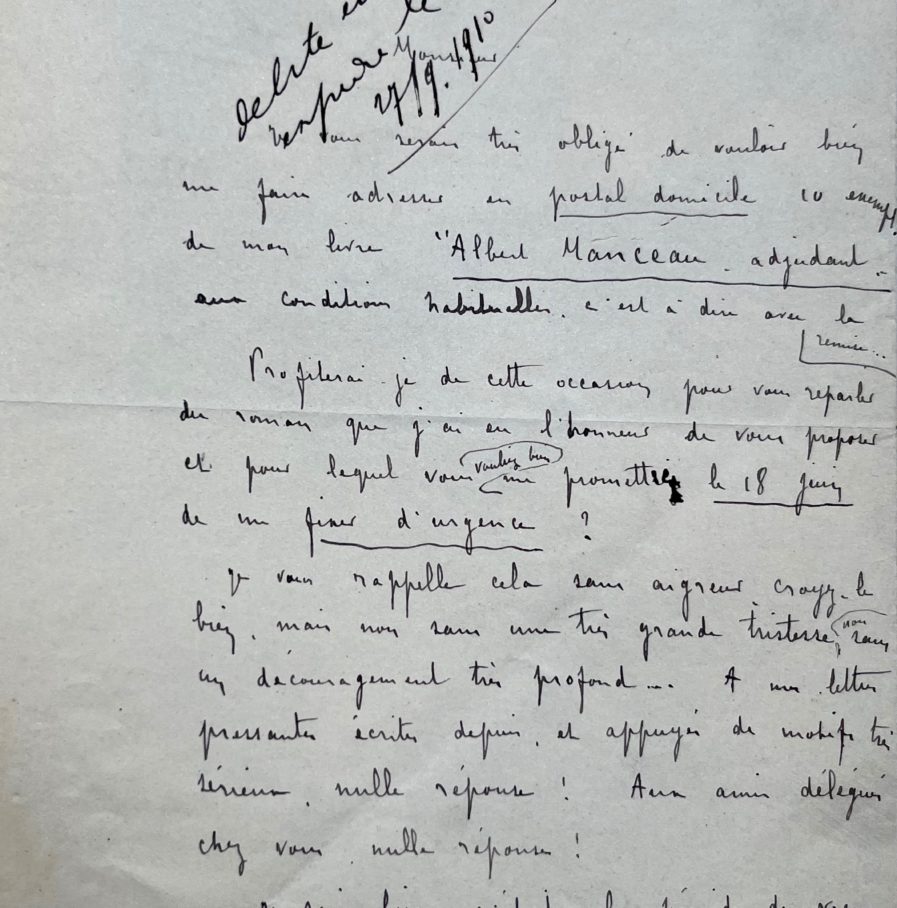 debite
le
17/9.1910
Monsieur
Vous serais très obligé de vouloir bien
me faire adresser en postal domicile 10 exempl.
de mon livre "Albert Manceau. adjudant.
aux conditions habituelles. c'est à dire avec la
remise...
Profiterai-je de cette occasion pour vous reparler
du roman que j'ai eu l'honneur de vous proposer
et pour lequel vous vouliez bien me promettre le 18 juin
de me fixer d'urgence ?
je vous rappelle cela sans aigreur, croyez-le
bien, mais non sans une très grande tristesse, non sans
un découragement très profond... A mes lettres
pressantes écrites depuis, et appuyées de motifs très
sérieux, nulle réponse ! Aux amis délégués
chez vous nulle réponse !